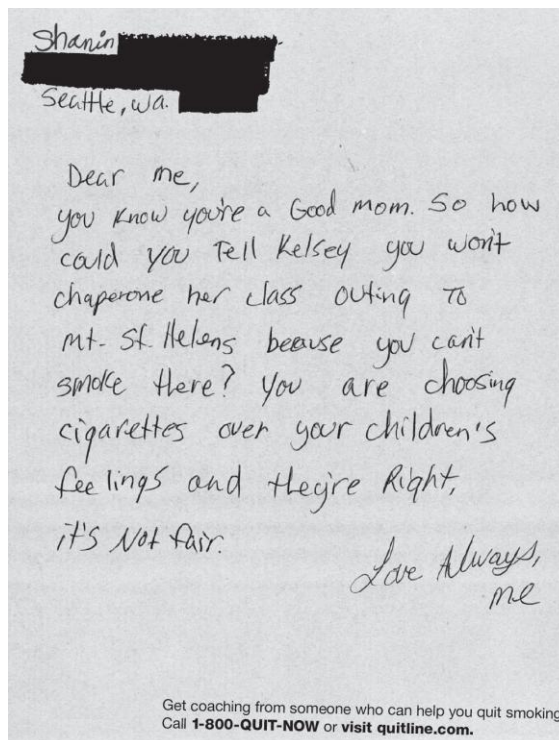 Shanin
Seattle, wa.
Dear me,
you know you're a Good mom. So how
could you Tell Kelsey you won't
chaperone her class outing To
mt. St. Helens because you can't
smoke there? you are choosing
cigarettes over your children's
feelings and they're Right,
it's Not fair.
Love Always,
me
Get coaching from someone who can help you quit smoking
Call 1-800-QUIT-NOW or visit quitline.com.